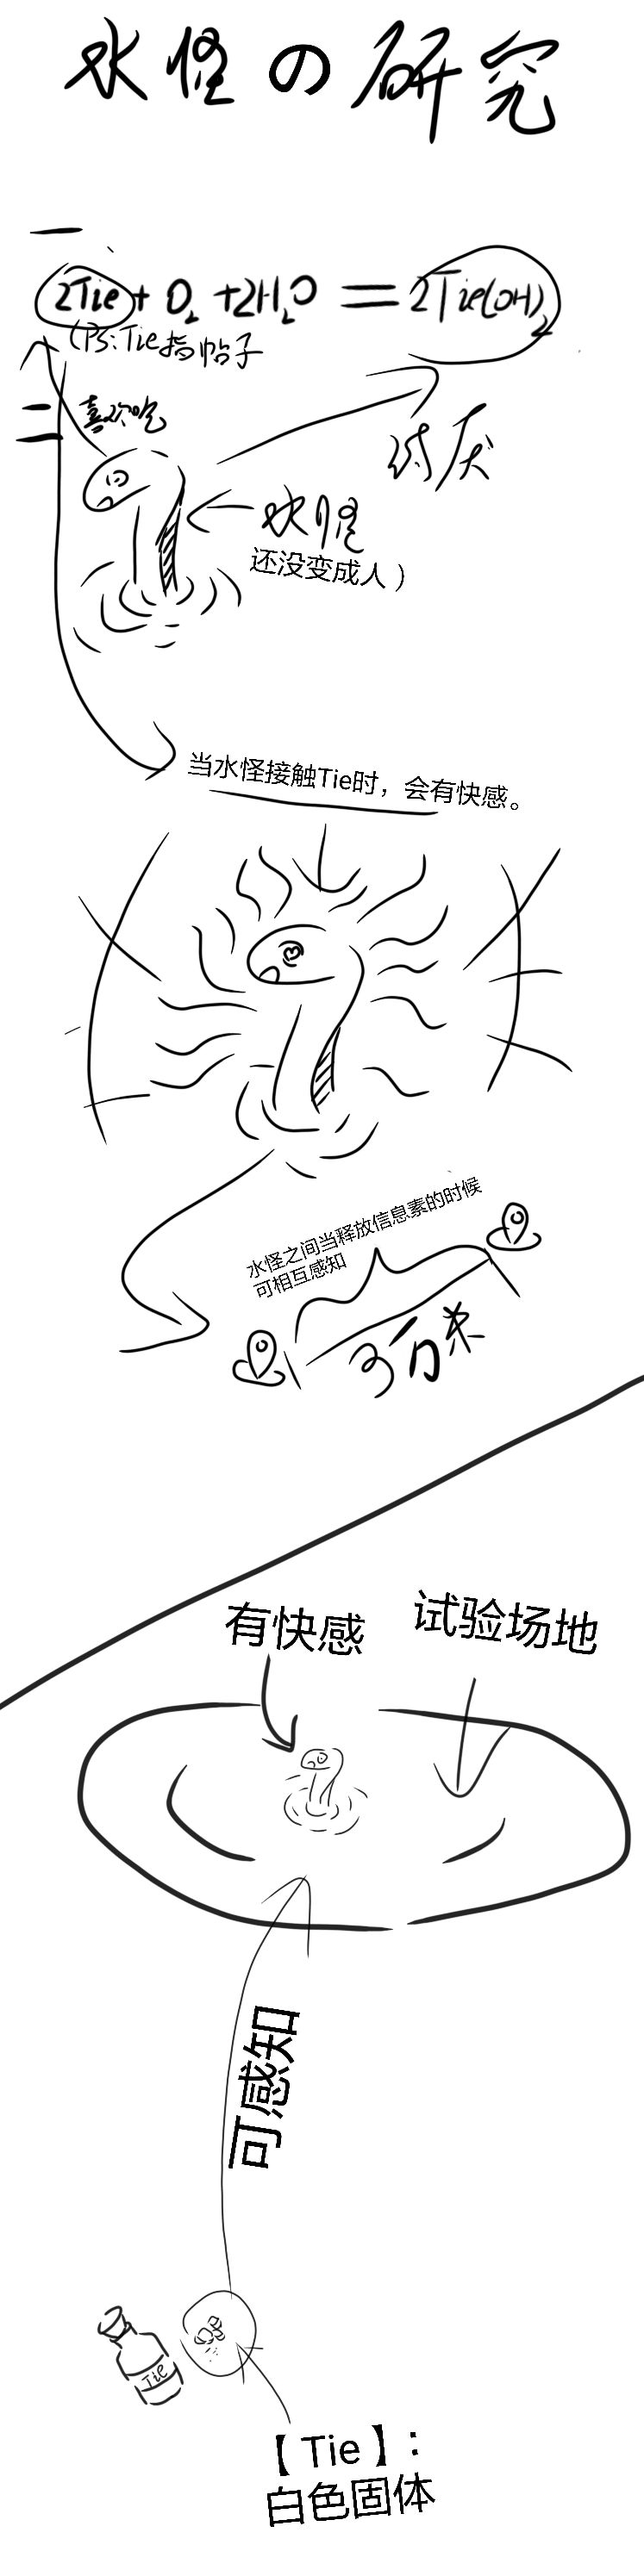 水怪の研究
一
2Tie + O₂ + 2H₂O = 2Tie(OH)₂
(PS:Tie指帖子
二
喜欢吃
讨厌
水怪
还没变成人）
当水怪接触Tie时，会有快感。
水怪之间当释放信息素的时候
可相互感知
3万米
有快感
试验场地
可感知
Tie
【Tie】：
白色固体